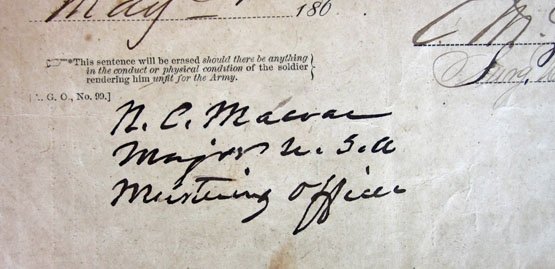 May 186
☞*This sentence will be erased should there be anything
in the conduct or physical condition of the soldier
rendering him unfit for the Army.
[A. G. O., No. 99.]
Surg.
N. C. Macrae
Major U. S. A
Mustering Officer